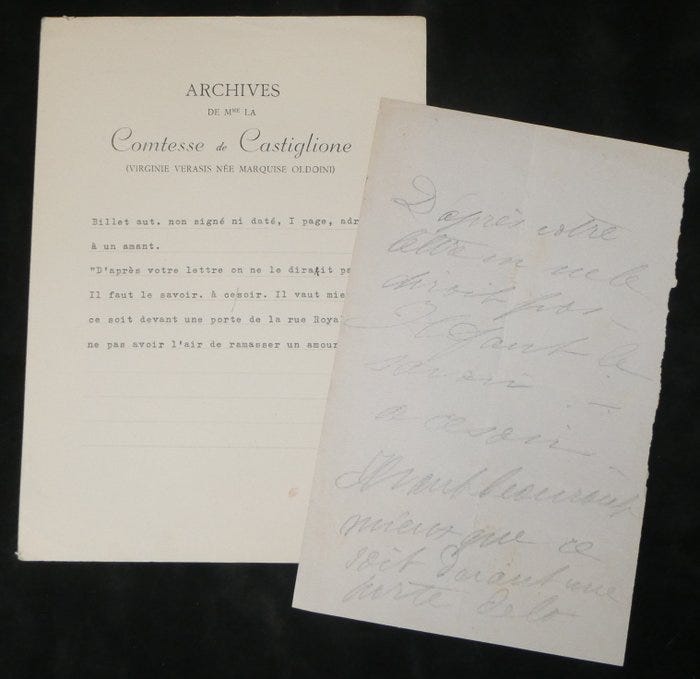 ARCHIVES
DE Mᴹᴱ LA
Comtesse de Castiglione
(VIRGINIE VERASIS NÉE MARQUISE OLDOINI)
Billet aut. non signé ni daté, I page, adr
à un amant.
"D'après votre lettre on ne le dirait pa
Il faut le savoir. à cesoir. Il vaut mie
ce soit devant une porte de la rue Royal
ne pas avoir l'air de ramasser un amour
D'après votre
lettre on ne le
diroit pas -
Il faut le
savoir -
a cesoir -
Il vaut beaucoup
mieux que ce
soit devant une
porte de la